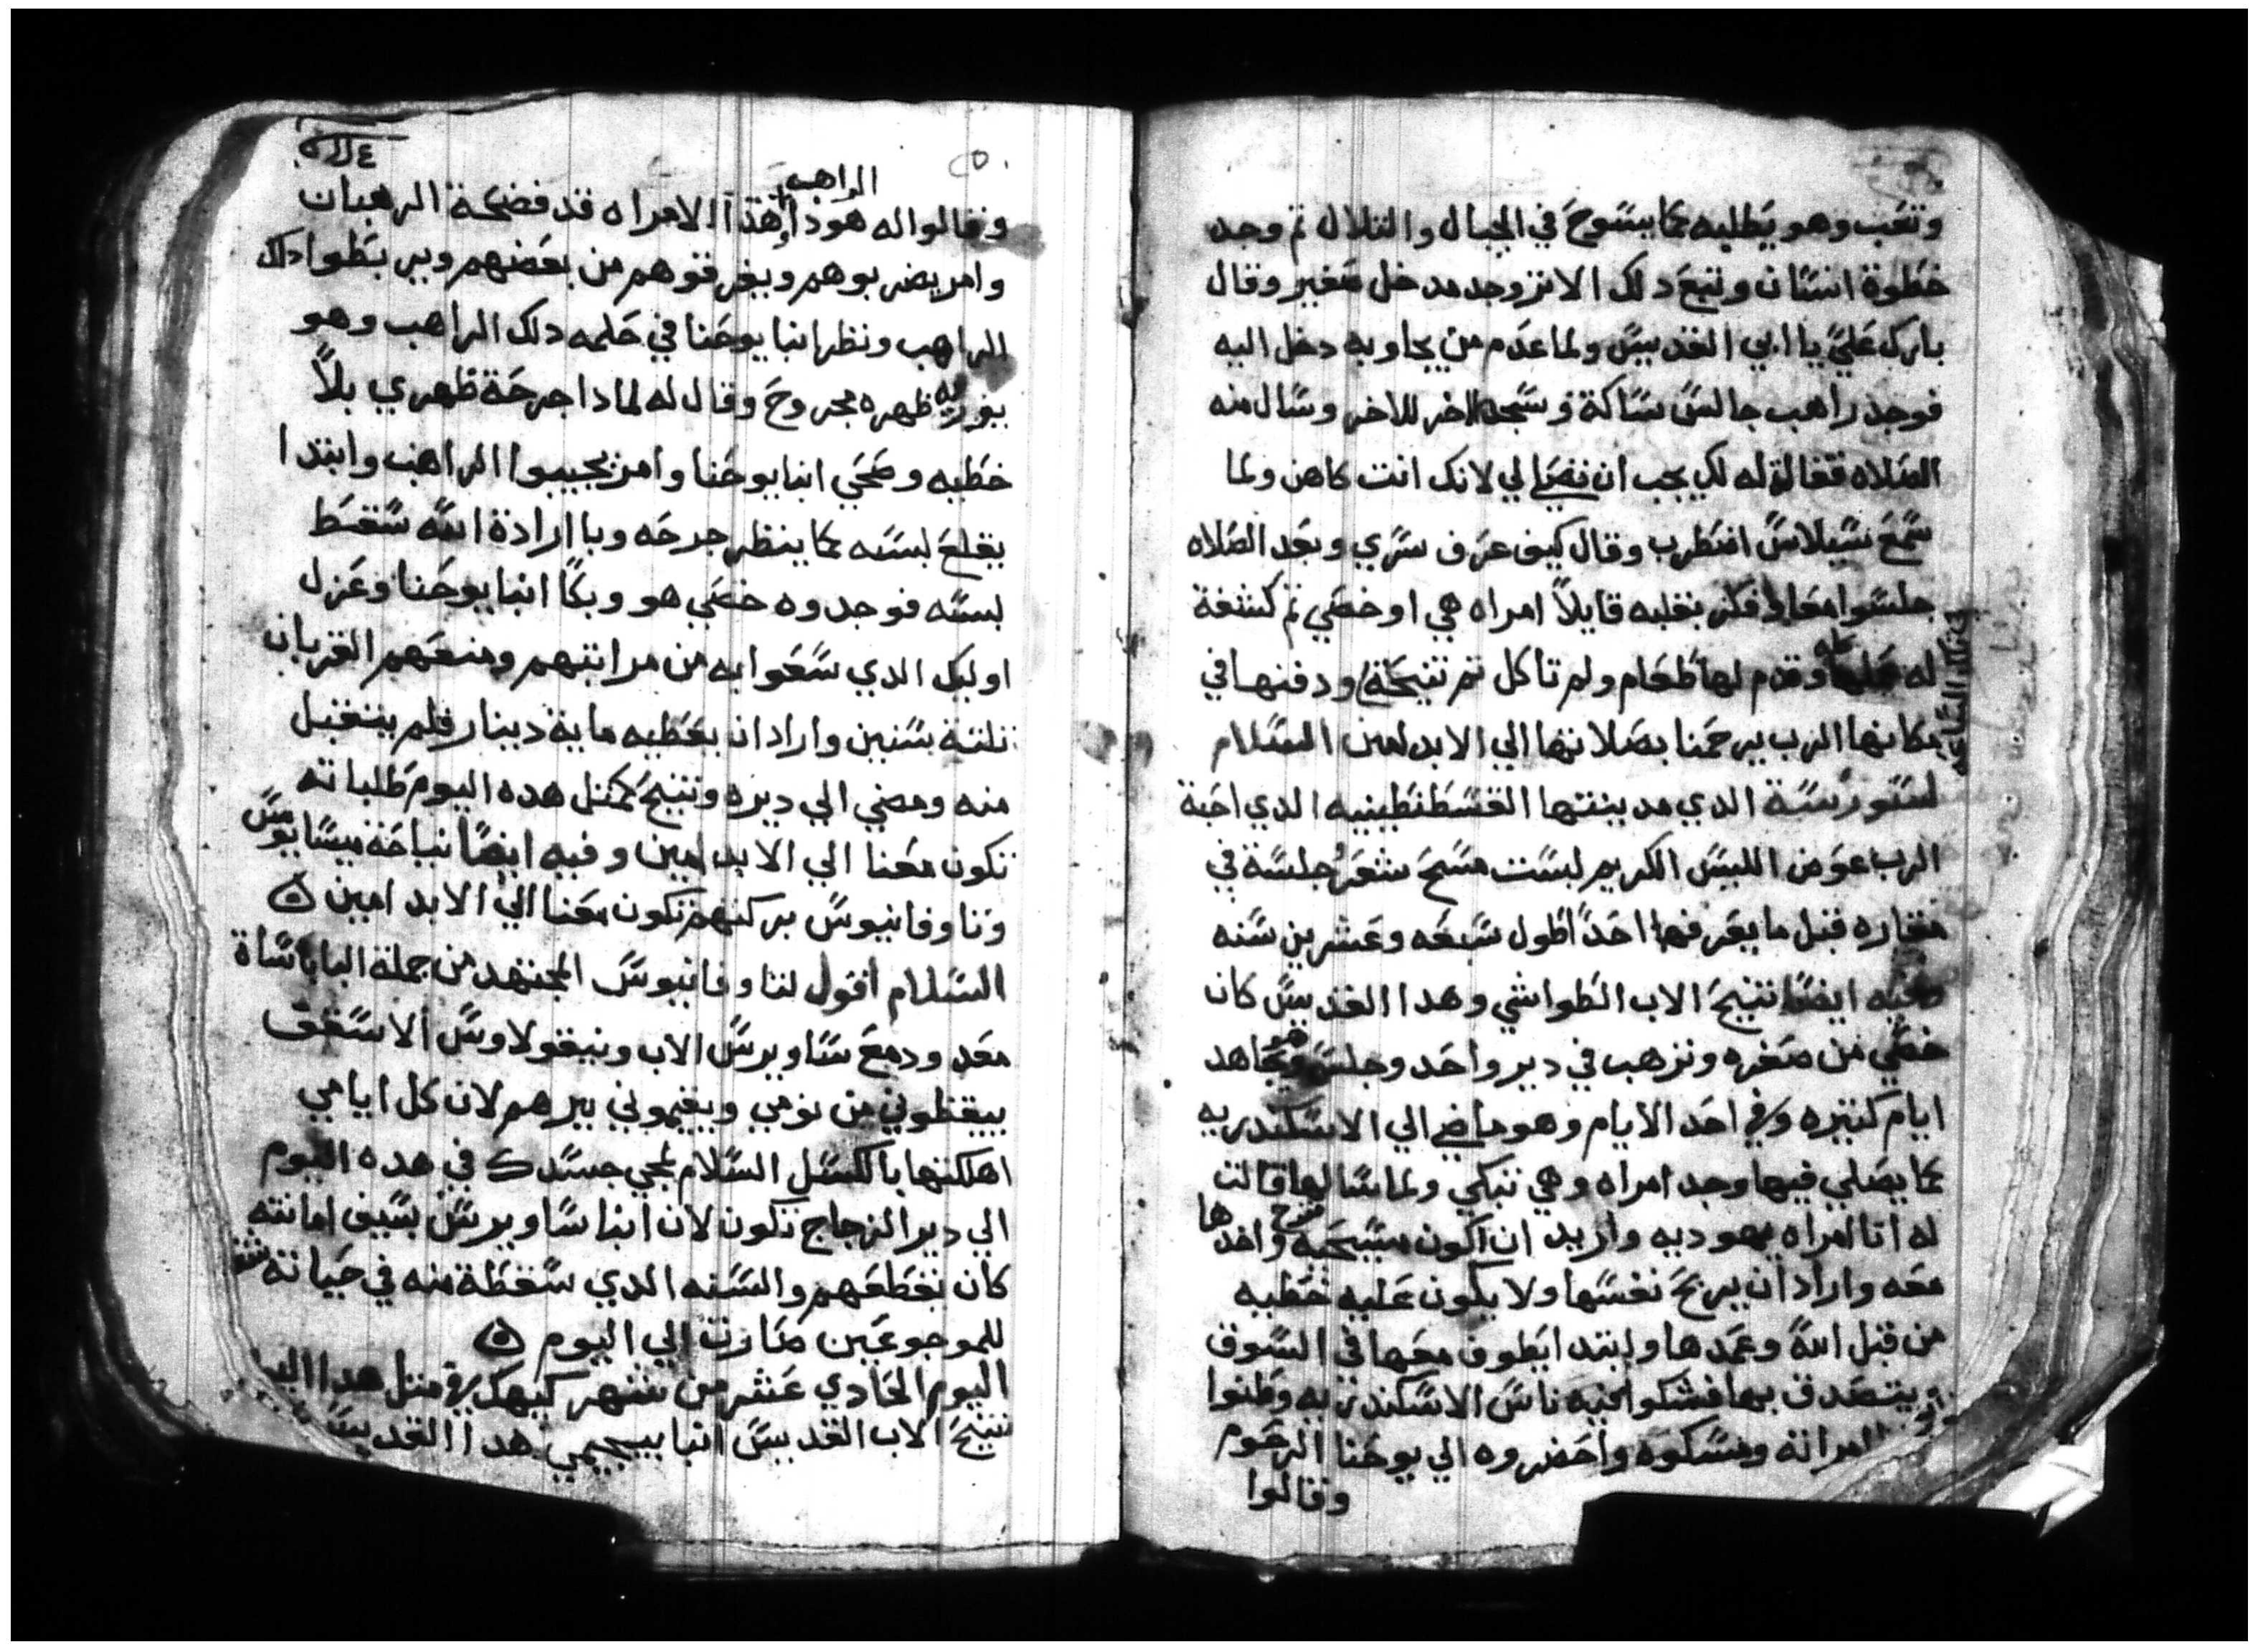 وتعب وهو يطلبه كما يسوح في الجبال والتلال تم وجد
خطوة انسان وتبع دلك الاتر وجد مدخل صغير وقال
بارك علي يا ابي القديس ولما عدم من يجاوبه دخل اليه
فوجد راهب جالس ساكة وسجد الاخر للاخر وسال منه
الصلاه فقالة له لك يجب ان تصلي لي لانك انت كاهن ولما
سمع سيلاس اضطرب وقال كيف عرف سري وبعد الصلاه
جلسوا معا فكر بقلبه قايلاً امراه هي او خصي تم كشفة
له وقدم لها طعام ولم تاكل تم تنيحة ودفنها في
مكانها الرب يرحمنا بصلاتها الي الابد امين السلام
لستورسة الدي مدينتها القسطنطينيه الدي احبة
الرب عوض اللبس الكريم لبست مسح شعر جلسة في
مغاره قبل ما يعرفها احداً طول سبعه وعشرين سنه
وفيه ايضا تنيح الاب الطواشي وهدا القديس كان
خصي من صغره وترهب في دير واحد وجلس يجاهد
ايام كتيره وفي احد الايام وهو ماضي الي الاسكندريه
كما يصلي فيها وجد امراه وهي تبكي ولما سالها قالت
له انا امراه يهوديه واريد ان اكون مسيحيه فرح واخدها
معه واراد ان يربح نفسها ولا يكون عليه خطيه
من قبل الله وعمدها وابتدا يطوف معها في السوق
ويتصدق بها فشكوا فيه ناس الاسكندريه وظنوا
امراته ومسكوه واحضروه الي يوحنا الرحوم
وقالوا
٢٥٠
الراهب
وقالوا له هودا هدا الامراه قد فضحة الرهبان
وامر يضربوهم ويفرقوهم من بعضهم ويربطوا دلك
الراهب ونظر انبا يوحنا في حلمه دلك الراهب وهو
يوريه ظهره مجروح وقال له لمادا جرحة ظهري بلاً
خطيه وصحي انبا يوحنا وامر يجيبوا الراهب وابتدا
يقلع لبسه كما ينظر جرحه وبا ارادة الله سقط
لبسه فوجدوه خصي هو وبكا انبا يوحنا وعزل
اوليك الدي سعوا به من مراتبهم ومنعهم القربان
تلتة سنين واراد ان يعطيه ماية دينار فلم يتقبل
منه ومضي الي ديره وتنيح كمتل هده اليوم طلباته
تكون معنا الي الابد امين وفيه ايضاً نياحة نيسايوس
وتاوفانيوس بركتهم تكون معنا الي الابد امين
السلام اقول لتاوفانيوس المجتهد من جملة الباباساة
معد ودمع ساويرس الاب ونيقولاوس الاسقف
ييقظوني من نومي ويقيموني بيرهم لان كل ايامي
اهلكتها بالكسل السلام لمجي جسدك في هده اليوم
الي دير الزجاج تكون لان انبا ساويرس بسيف امانته
كان تقطعهم والسنه الدي سقطة منه في حياته
للموجوعين صارت الي اليوم
اليوم الحادي عشر من شهر كيهك في متل هدا
تنيح الاب القديس انبا بيجيمي هدا القديس